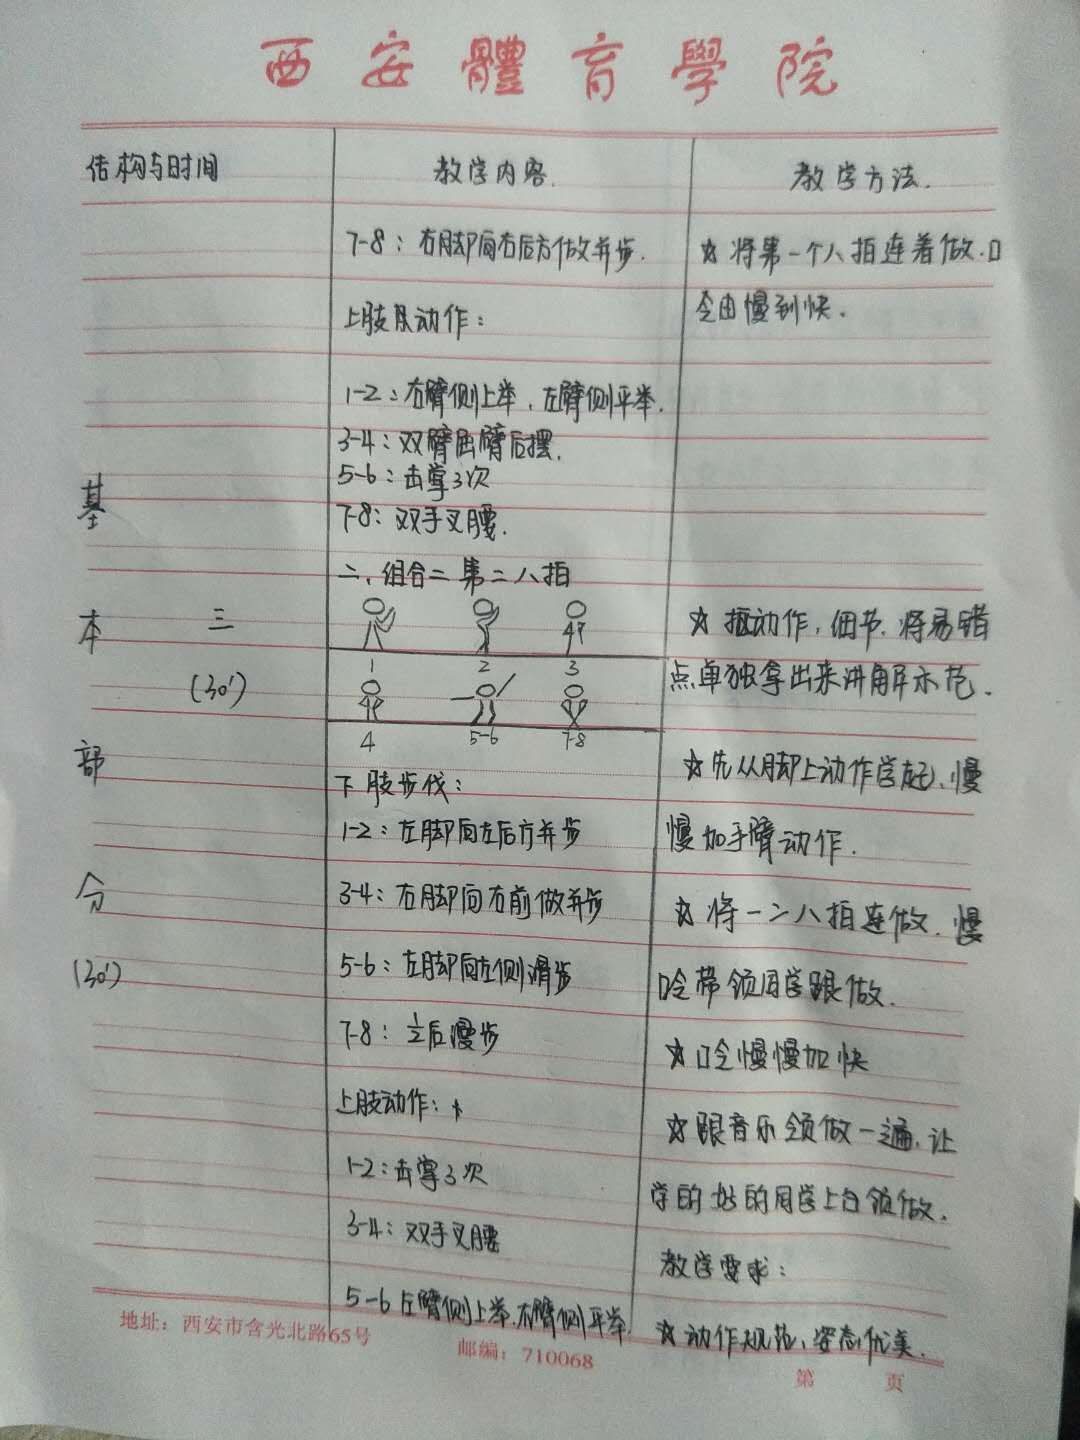 西安體育學院
结构与时间
教学内容.
教学方法.
7-8：右脚向右后方做并步.
上肢动作：
1-2：右臂侧上举，左臂侧平举.
3-4：双臂屈臂后摆.
5-6：击掌3次
7-8：双手叉腰.
二、组合二 第二八拍
1 2 3
4 5-6 7-8
下肢步伐：
1-2：左脚向左后方并步
3-4：右脚向右前做并步
5-6：左脚向左侧滑步
7-8：½后漫步
上肢动作：
1-2：击掌3次
3-4：双手叉腰
5-6 左臂侧上举.右臂侧平举.
基
本
部
分
(30')
三
(30')
☆ 将第一个八拍连着做.口
令由慢到快.
☆ 抠动作，细节.将易错
点单独拿出来讲解示范.
☆先从脚上动作学起、慢
慢加手臂动作.
☆ 将一二八拍连做.慢
口令带领同学跟做.
☆口令慢慢加快
☆跟音乐领做一遍.让
学的好的同学上台领做.
教学要求：
☆动作规范、姿态优美.
地址：西安市含光北路65号
邮编：710068
第 页